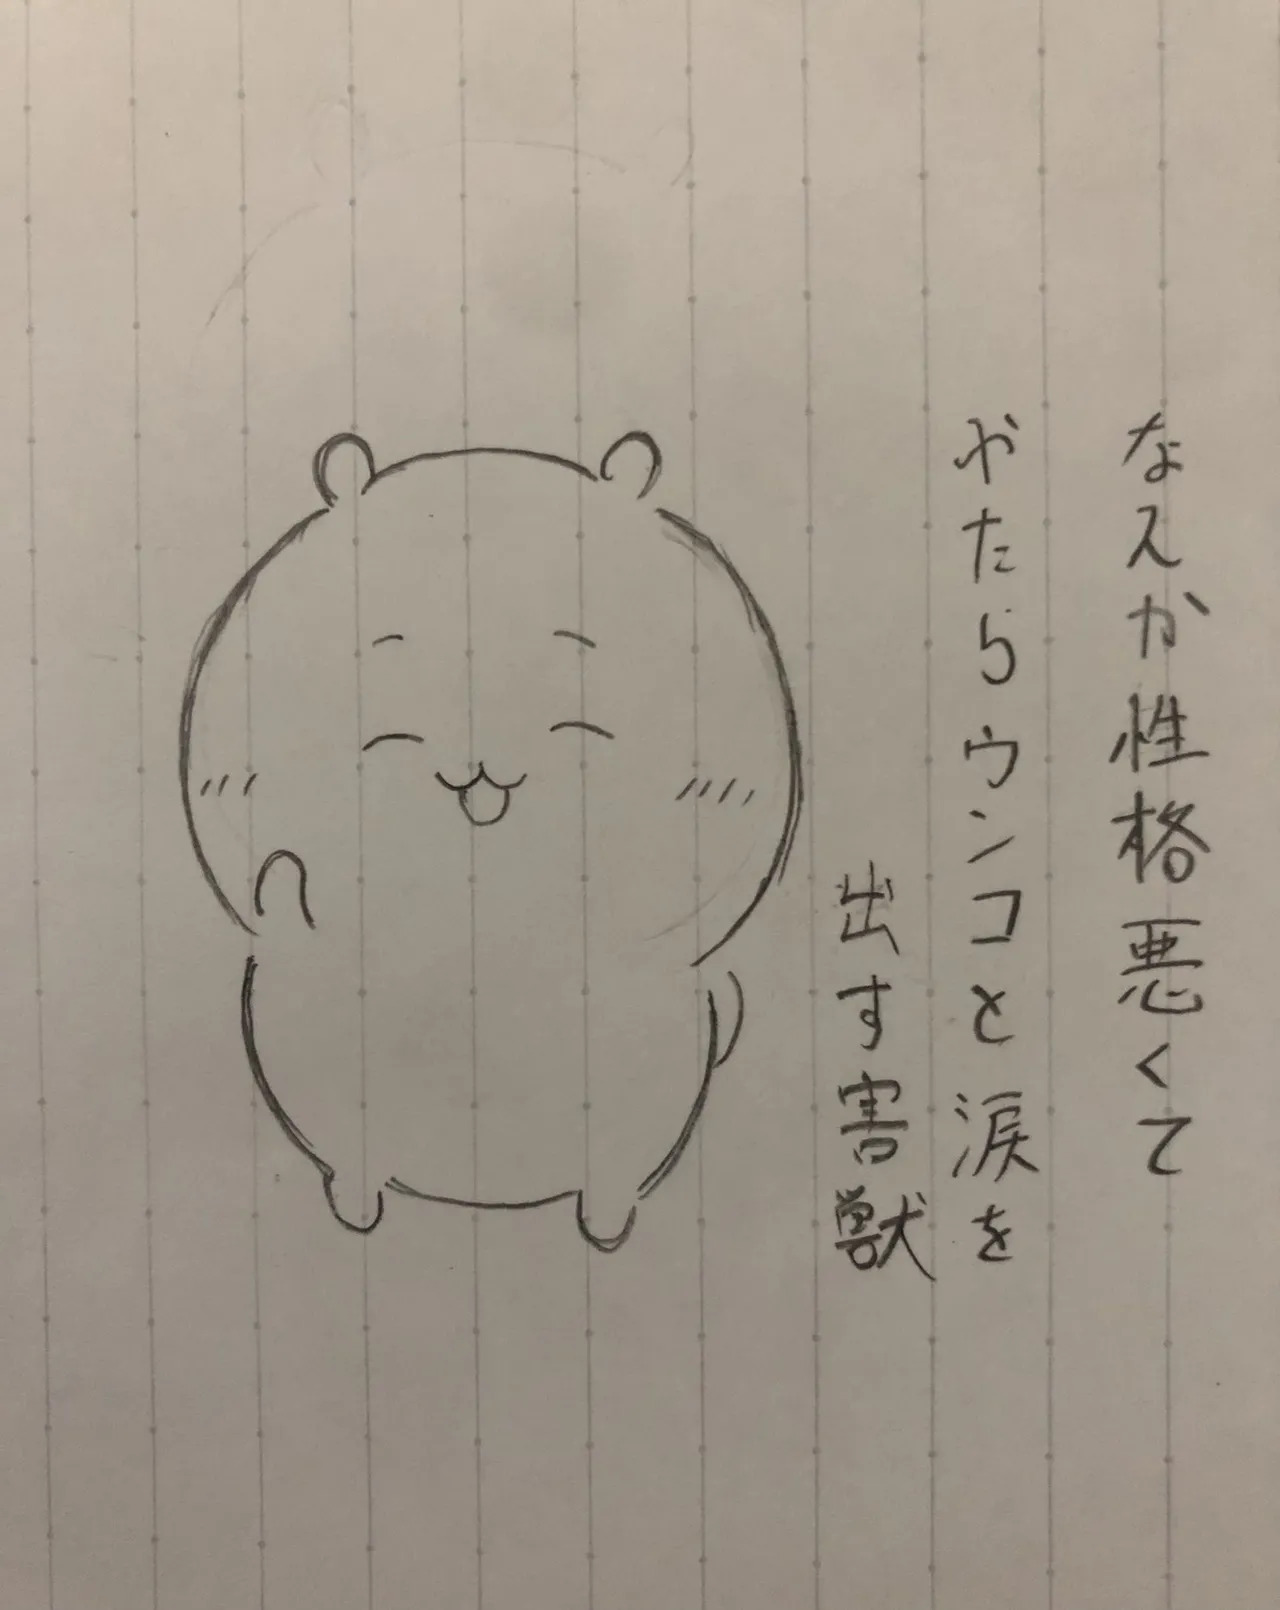 なんか性格悪くて
やたらウンコと涙を
出す害獣